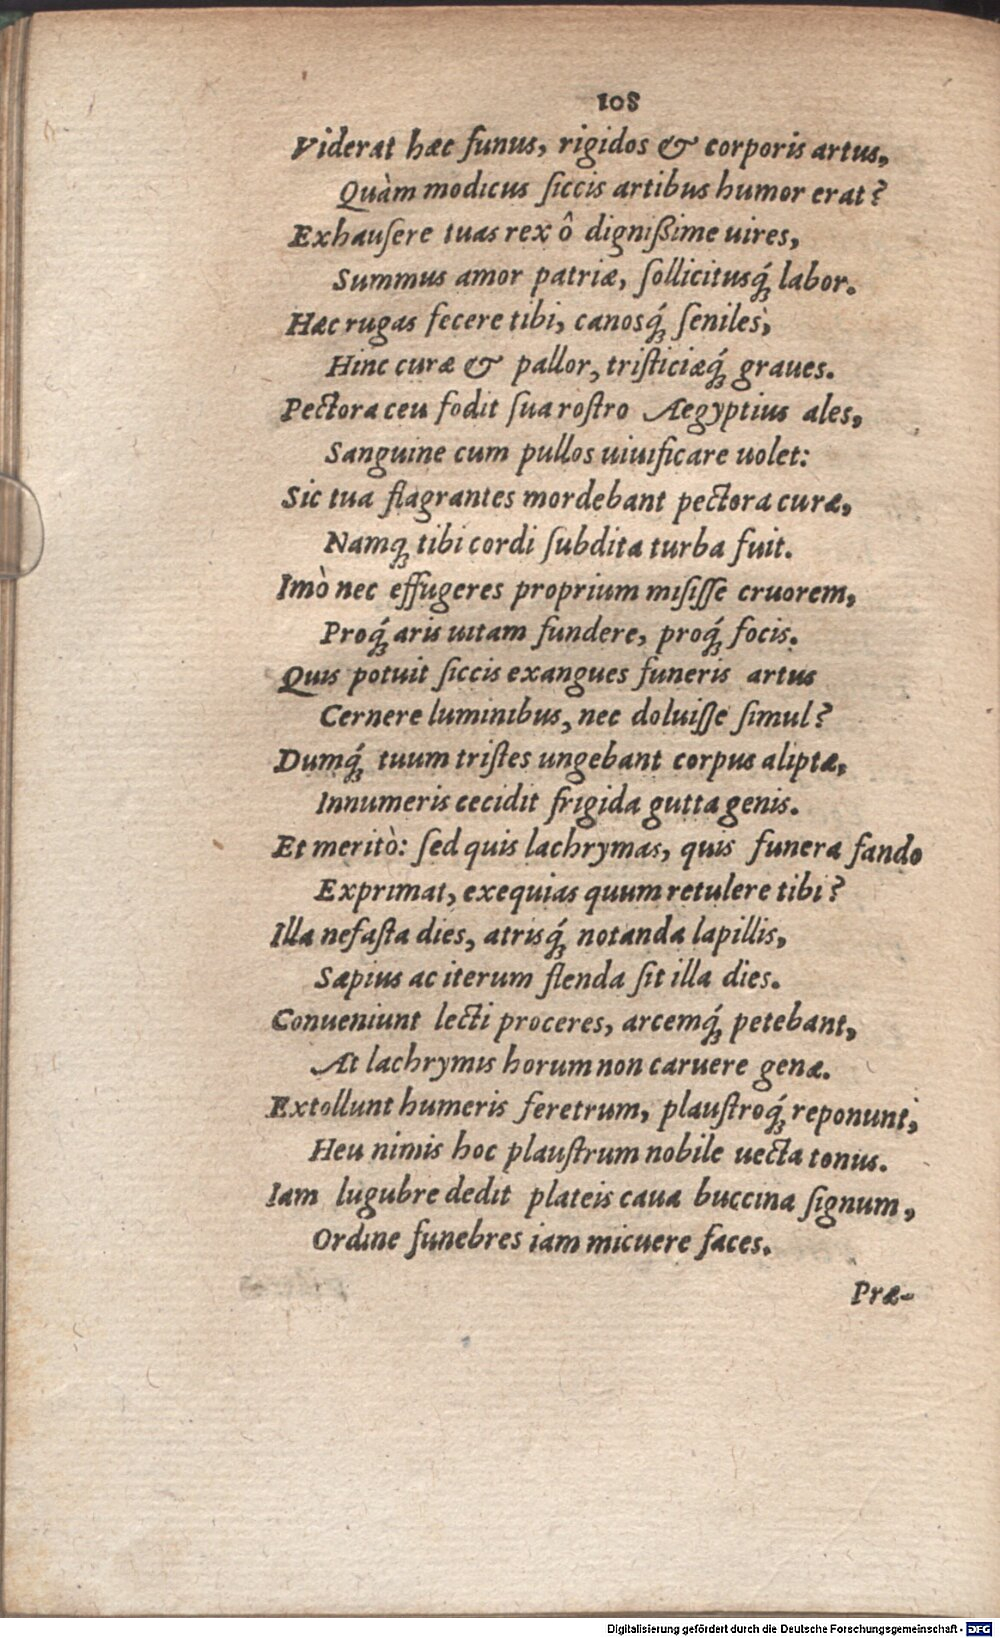 108
Viderat hæc funus, rigidos & corporis artus,
Quàm modicus ſiccis artibus humor erat?
Exhauſere tuas rex ô dignißime uires,
Summus amor patriæ, ſollicitusq́; labor.
Hæc rugas fecere tibi, canosq́; ſeniles,
Hinc curæ & pallor, triſticiæq́; graues.
Pectora ceu fodit ſua roſtro Aegyptius ales,
Sanguine cum pullos uiuificare uolet:
Sic tua flagrantes mordebant pectora curæ,
Namq; tibi cordi ſubdita turba fuit.
Imò nec effugeres proprium miſiſſe cruorem,
Proq́; aris uitam fundere, proq́; focis.
Quis potuit ſiccis exangues funeris artus
Cernere luminibus, nec doluiſſe ſimul?
Dumq́; tuum triſtes ungebant corpus aliptæ,
Innumeris cecidit frigida gutta genis.
Et meritò: ſed quis lachrymas, quis funera fando
Exprimat, exequias quum retulere tibi?
Illa nefaſta dies, atrisq́; notanda lapillis,
Sæpius ac iterum flenda ſit illa dies.
Conueniunt lecti proceres, arcemq́; petebant,
At lachrymis horum non caruere genæ.
Extollunt humeris feretrum, plauſtroq́; reponunt,
Heu nimis hoc plauſtrum nobile uecta tonus.
Iam lugubre dedit plateis caua buccina ſignum,
Ordine funebres iam micuere faces.
Præ-
Digitalisierung gefördert durch die Deutsche Forschungsgemeinschaft - DFG